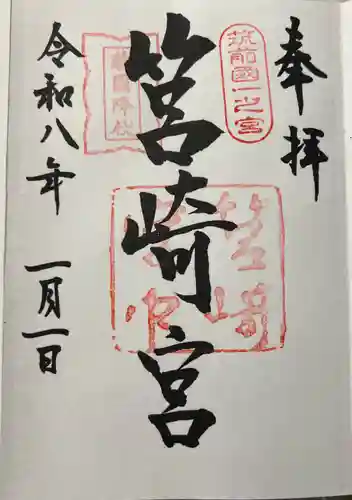 奉拝
筑前國一之宮
筥崎宮
筥崎宮
敵國降伏
令和八年 一月一日